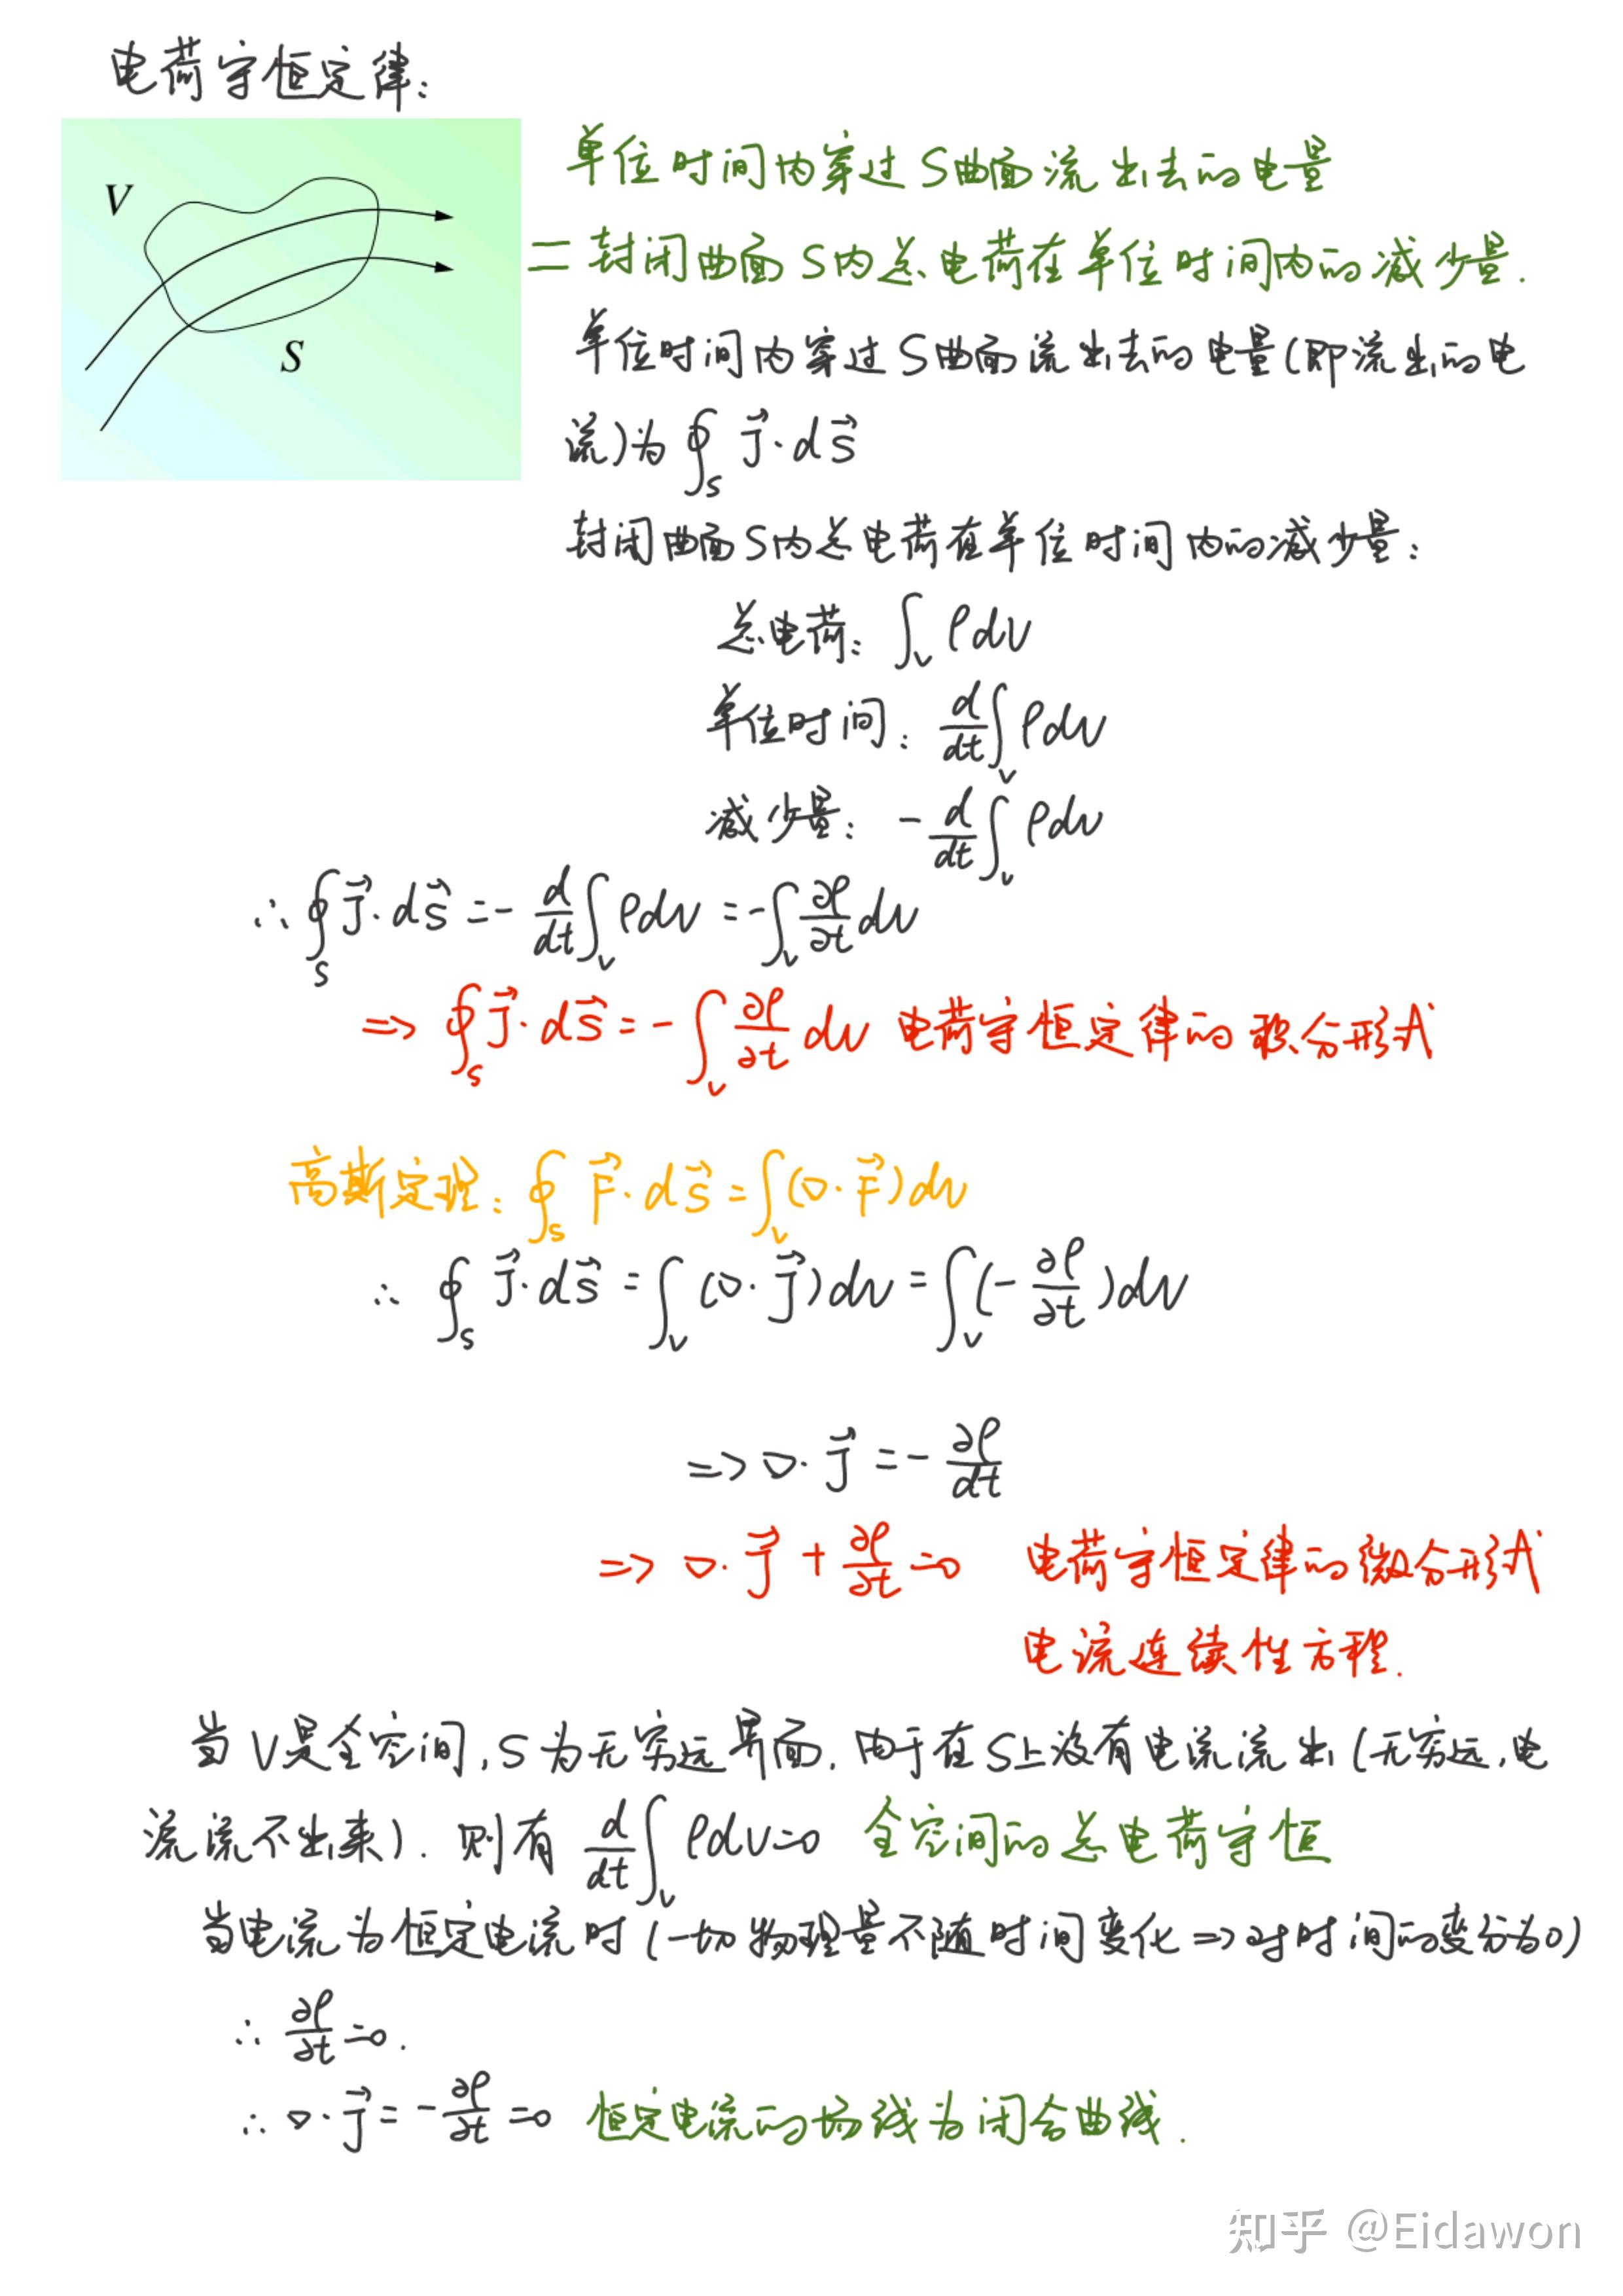 电荷守恒定律：
V
S
单位时间内穿过S曲面流出去的电量
=封闭曲面S内总电荷在单位时间内的减少量.
单位时间内穿过S曲面流出去的电量(即流出的电
流)为∮_S J⃗·dS⃗
封闭曲面S内总电荷在单位时间内的减少量：
总电荷：∫_V ρdV
单位时间：d/dt ∫_V ρdV
减少量：-d/dt ∫_V ρdV
∴ ∮_S J⃗·dS⃗ = -d/dt ∫_V ρdV = -∫_V ∂ρ/∂t dV
=> ∮_S J⃗·dS⃗ = -∫_V ∂ρ/∂t dV 电荷守恒定律的积分形式
高斯定理：∮_S F⃗·dS⃗ = ∫_V (∇·F⃗)dV
∴ ∮_S J⃗·dS⃗ = ∫_V (∇·J⃗)dV = ∫_V (-∂ρ/∂t)dV
=> ∇·J⃗ = -∂ρ/dt
=> ∇·J⃗ + ∂ρ/∂t = 0 电荷守恒定律的微分形式
电流连续性方程.
当V是全空间,S为无穷远界面,由于在S上没有电流流出(无穷远,电
流流不出来).则有 d/dt ∫_V ρdV=0 全空间的总电荷守恒
当电流为恒定电流时(一切物理量不随时间变化=>对时间的变分为0)
∴ ∂ρ/∂t=0.
∴ ∇·J⃗ = -∂ρ/∂t=0 恒定电流的场线为闭合曲线.
知乎 @Eidawon